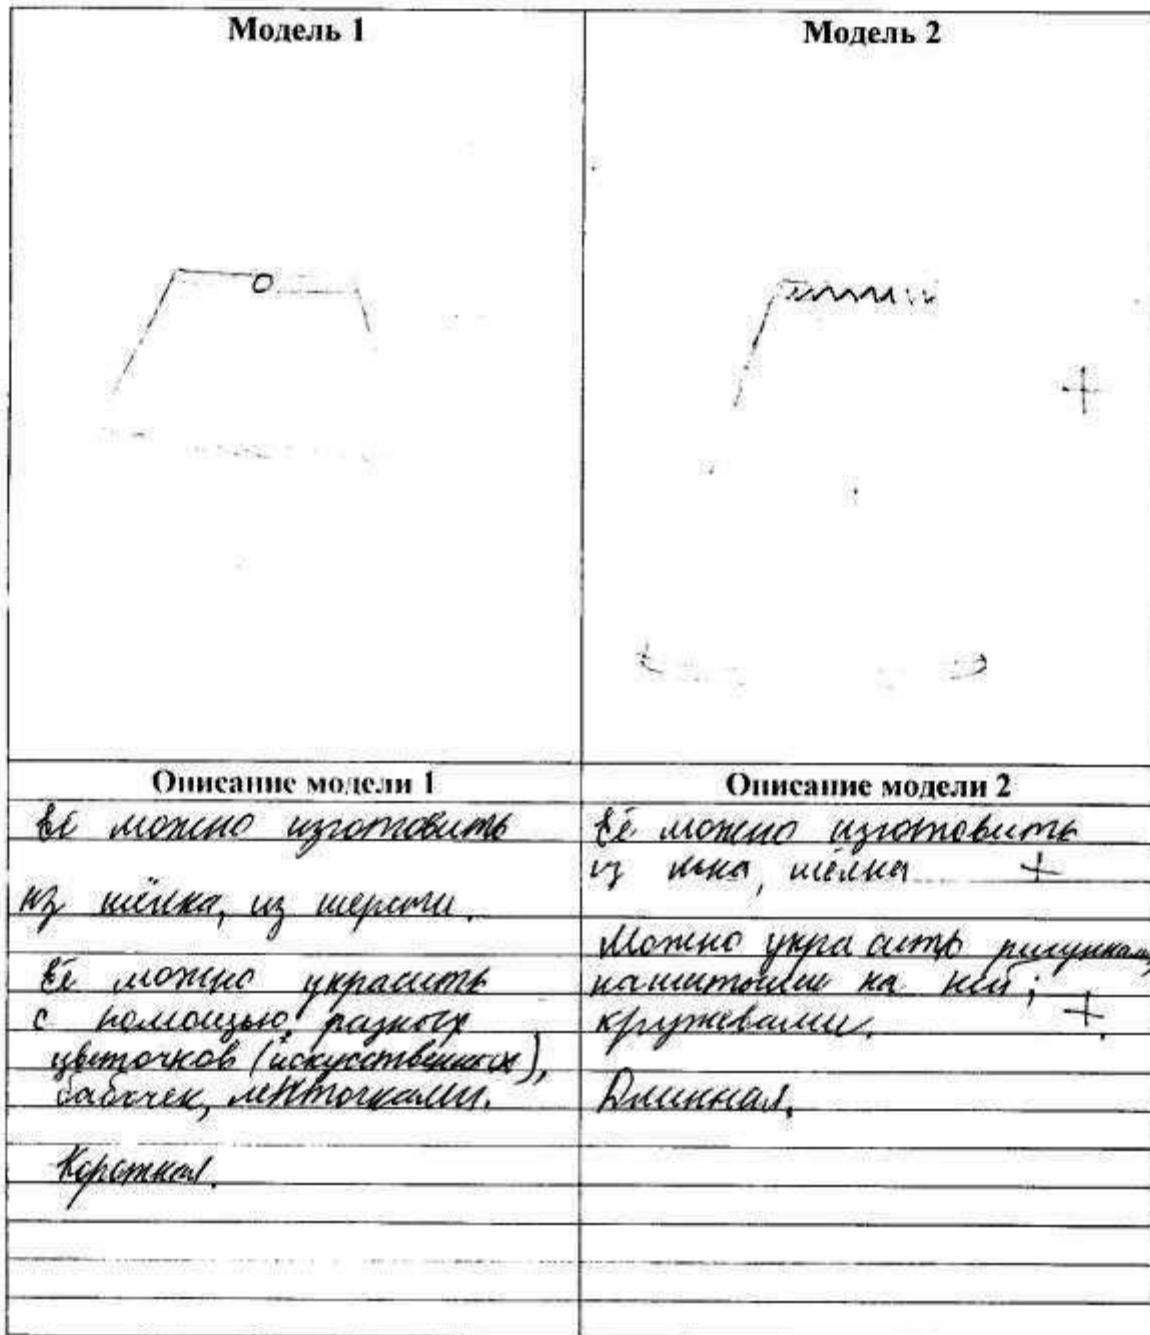 Модель 1
Модель 2
Описание модели 1
Её можно изготовить
из шёлка, из шерсти.
Её можно украсить
с помощью разных
цветочков (искусственных),
бабочек, ленточками.
Короткая.
Описание модели 2
Её можно изготовить
из льна, шёлка +
Можно украсить рисунками,
нашитыми на ней;
кружевами. +
Длинная.